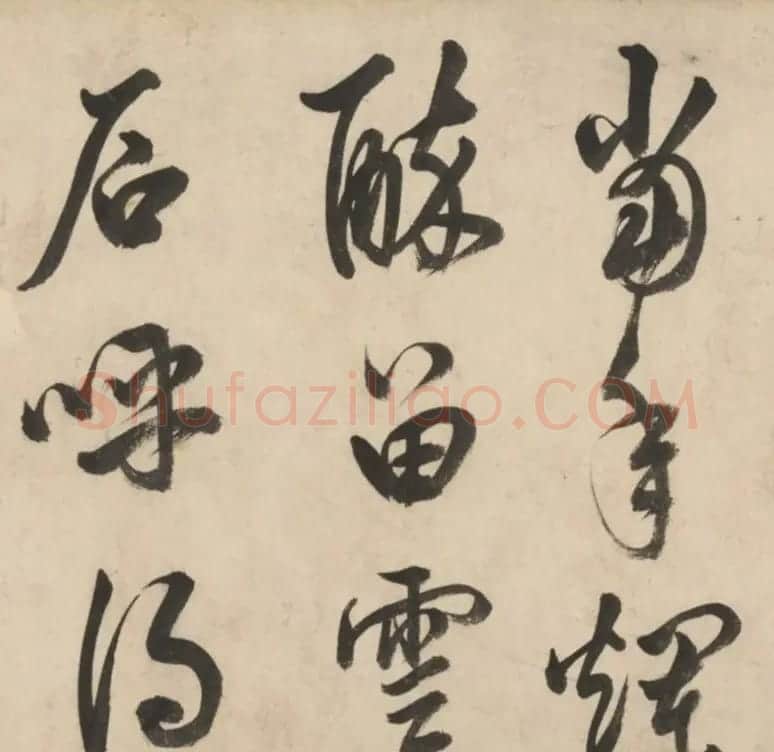 當年
醉留雲
石呼得
Shufaziliao.COM